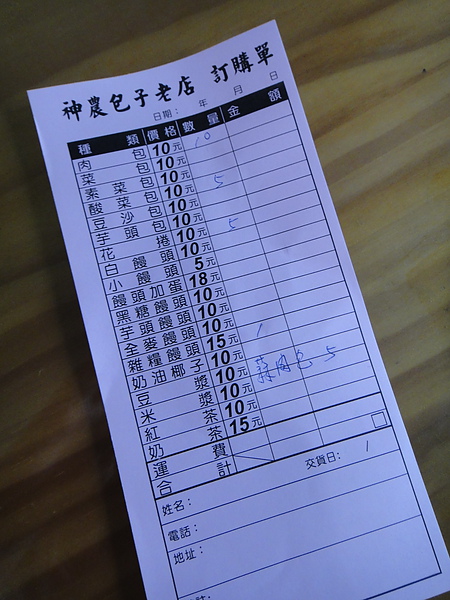 神農包子老店 訂購單
日期： 年 月 日
種類 價格 數量 金額
肉包 10元 10
菜包 10元
素菜包 10元
酸菜包 10元 5
豆沙包 10元
芋頭包 10元
花捲 10元 5
白饅頭 10元
小饅頭 5元
饅頭加蛋 18元
黑糖饅頭 10元
芋頭饅頭 10元
全麥饅頭 10元
雜糧饅頭 15元 1
奶油椰子 10元
豆漿 10元 蒜肉包 5
米漿 10元
紅茶 10元
奶茶 15元
運費
合計
交貨日： /
姓名：
電話：
地址：